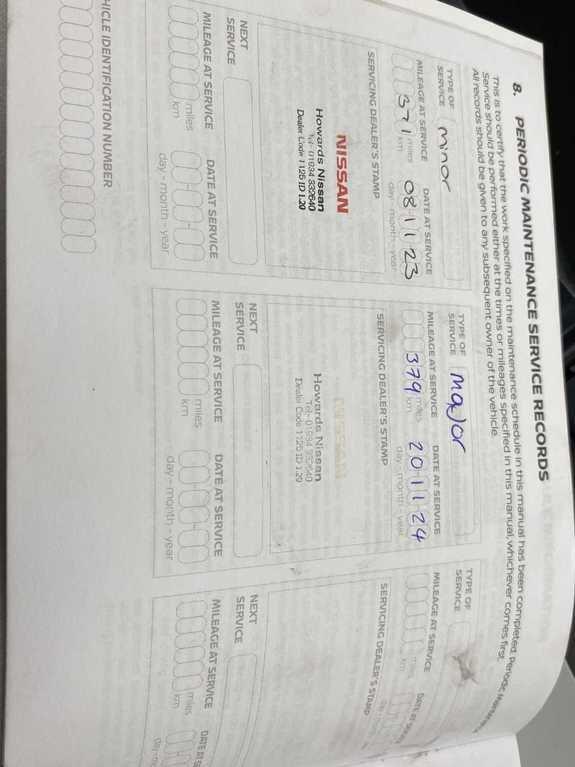 8. PERIODIC MAINTENANCE SERVICE RECORDS
This is to certify that the work specified on the maintenance schedule in this manual has been completed. Periodic Maintenance
Service should be performed either at the times or mileages specified in this manual, whichever comes first.
All records should be given to any subsequent owner of the vehicle.
TYPE OF
SERVICE
minor
MILEAGE AT SERVICE
371
miles
km
DATE AT SERVICE
08 11 23
day - month - year
SERVICING DEALER'S STAMP
NISSAN
Howards Nissan
Tel- 01934 332640
Dealer Code 1126 ID 1.29
NEXT
SERVICE
MILEAGE AT SERVICE
miles
km
DATE AT SERVICE
day - month - year
TYPE OF
SERVICE
major
MILEAGE AT SERVICE
379
miles
km
DATE AT SERVICE
20 11 24
day - month - year
SERVICING DEALER'S STAMP
NISSAN
Howards Nissan
Tel- 01934 332640
Dealer Code 1126 ID 1.29
NEXT
SERVICE
MILEAGE AT SERVICE
miles
km
DATE AT SERVICE
day - month - year
TYPE OF
SERVICE
MILEAGE AT SERVICE
miles
km
DATE AT SERVICE
SERVICING DEALER'S STAMP
NEXT
SERVICE
MILEAGE AT SERVICE
miles
km
DATE AT
HICLE IDENTIFICATION NUMBER